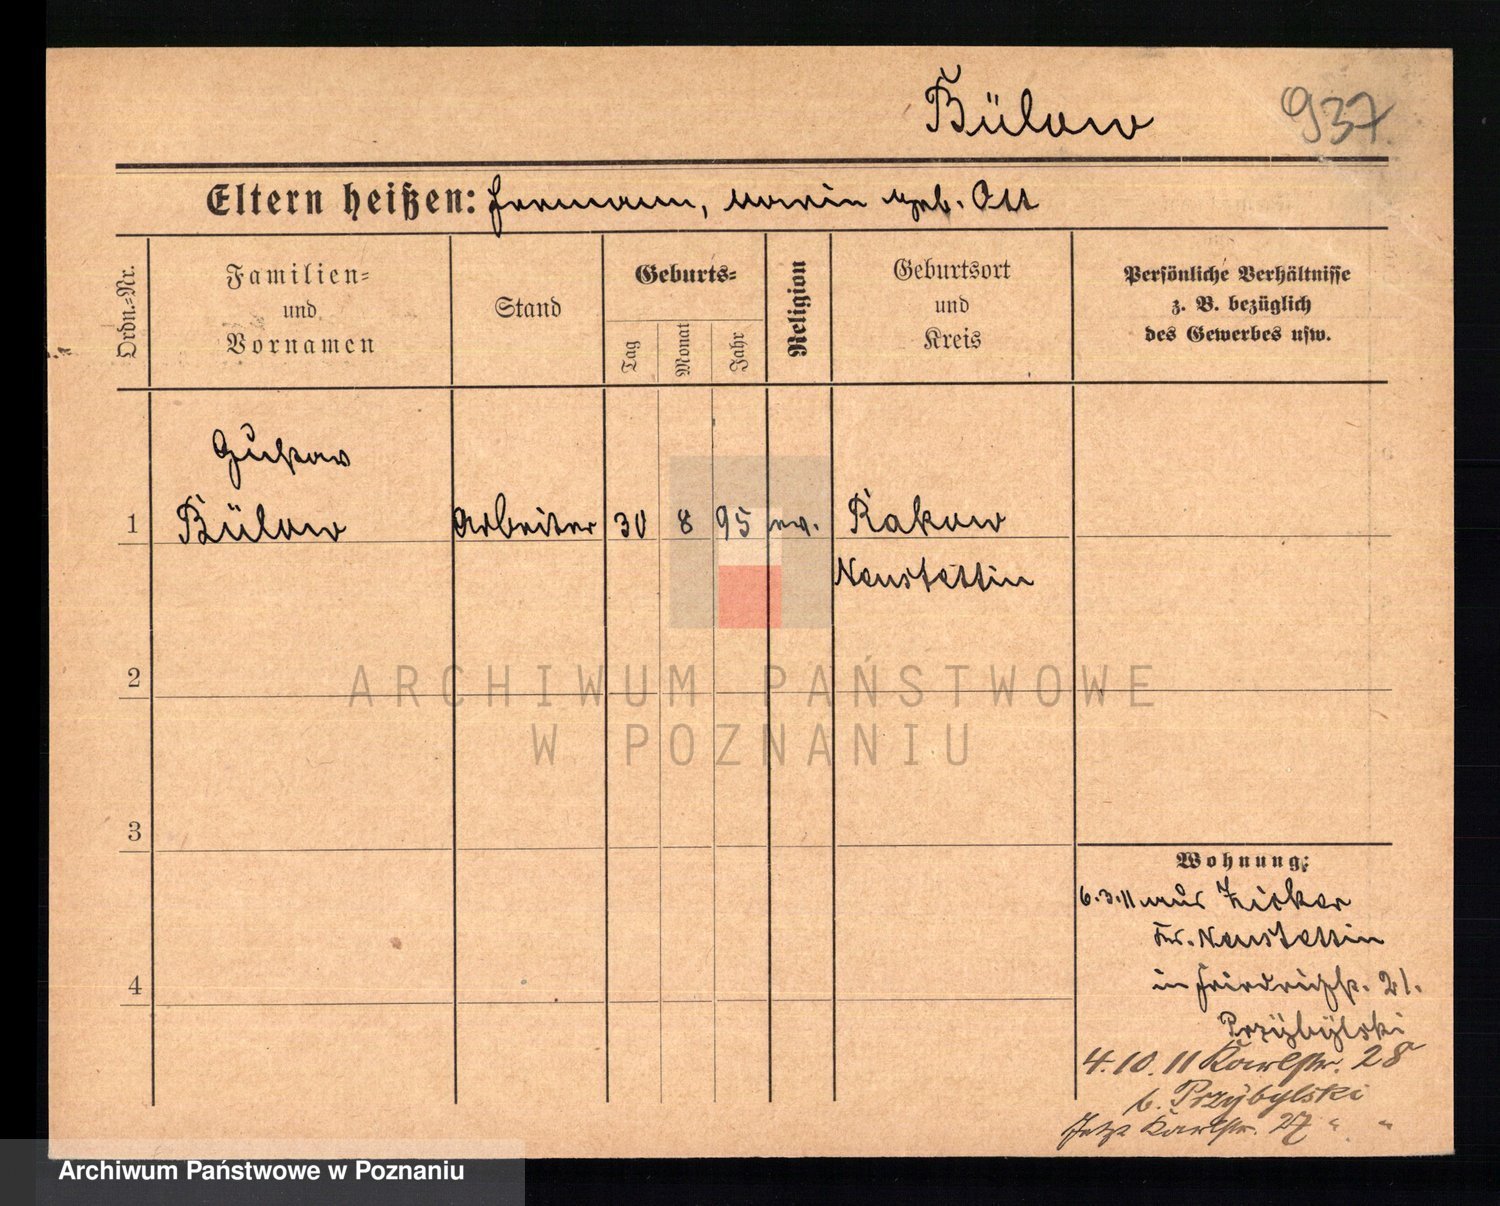 Bülow
937.
Eltern heißen: Hermann, Marie geb. Ott
Ordn.-Nr.
Familien-
und
Vornamen
Stand
Geburts-
Tag
Monat
Jahr
Religion
Geburtsort
und
Kreis
Persönliche Verhältnisse
z. B. bezüglich
des Gewerbes usw.
Gustav
1 Bülow Arbeiter 30 8 95 ev. Rakow
Neustettin
2
ARCHIWUM PAŃSTWOWE
W POZNANIU
3
Wohnung:
6.3.11 aus Zicker
Kr. Neustettin
4
in Friedrichstr. 21.
Przybylski
4.10.11 Karlstr. 28
b. Przybylski
Jetzt Karlstr. 27 " "
Archiwum Państwowe w Poznaniu